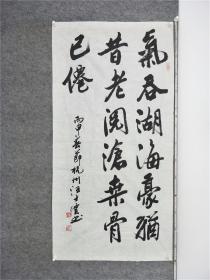 氣吞湖海豪猶
昔老閱滄桒骨
已僊
丙申春節杭州汪士